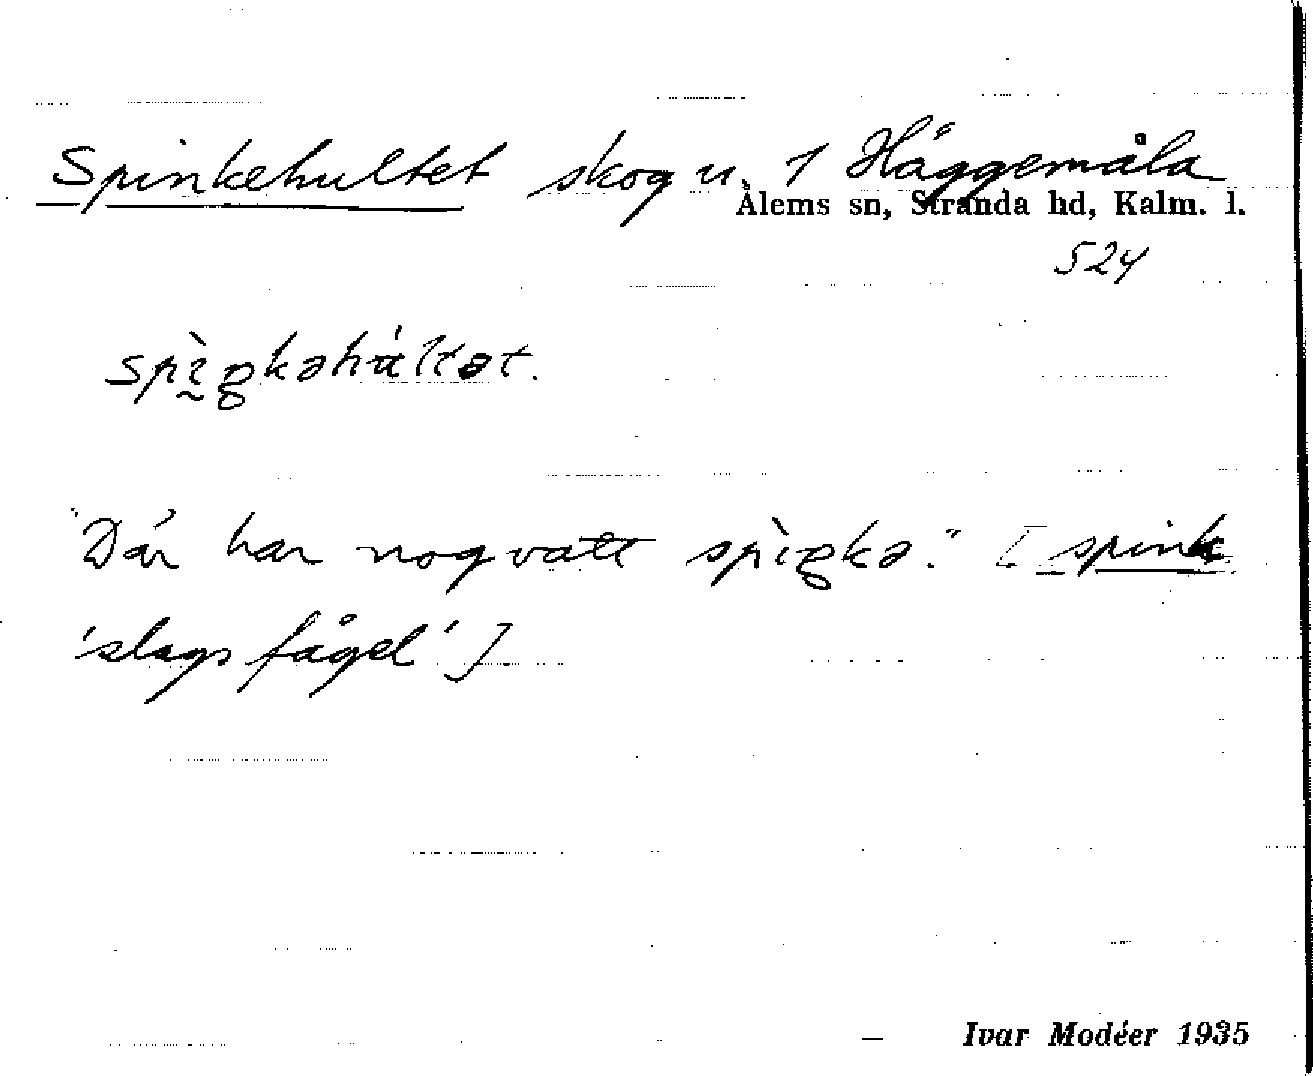 Spinkehultet skog u. 1 Häggemåla
Ålems sn, Stranda hd, Kalm. l.
524
spḭ̀ŋkəhúltət.
"Där har nog vatt spìŋkə." [spink
'slags fågel']
– Ivar Modéer 1935